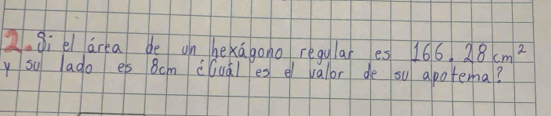 2. Si el área de un hexágono regular es 166.28 cm²
y su lado es 8cm ¿Cuál es el valor de su apotema?